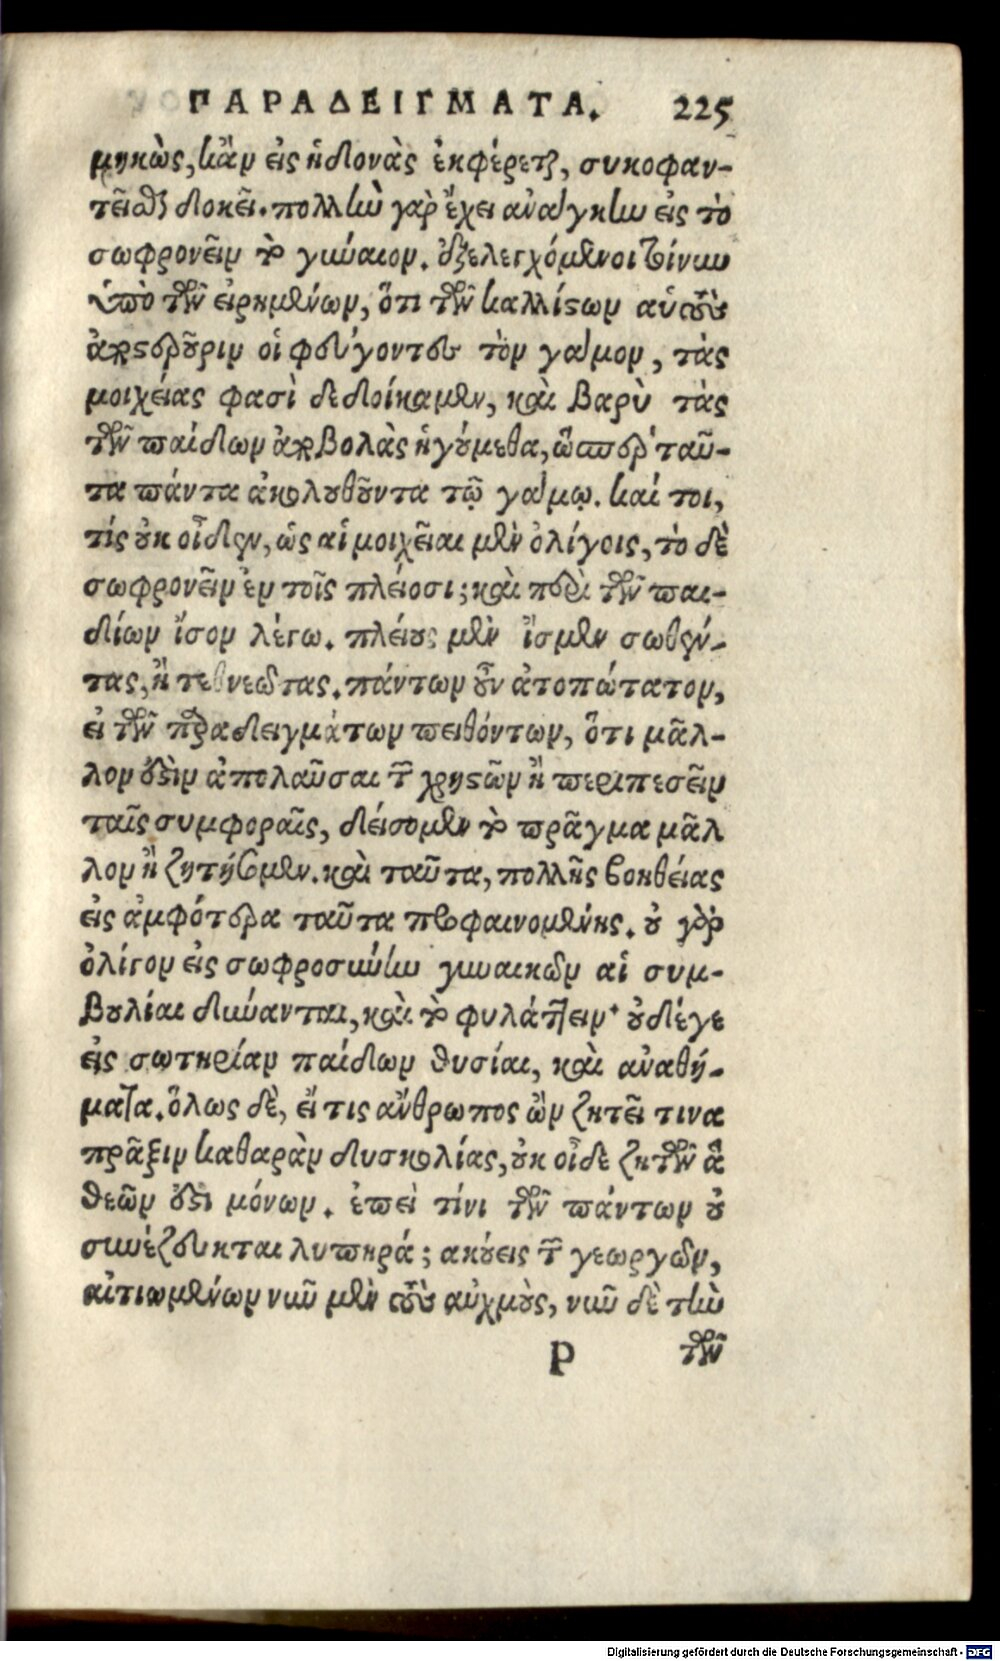 ΠΑΡΑΔΕΙΓΜΑΤΑ. 225
μηκὼς, κἂν εἰς ἡδονὰς ἐκφέρεται, συκοφαν-
τεῖσθαι δοκεῖ. πολλὴν γὰρ ἔχει ἀνάγκην εἰς τὸ
σωφρονεῖν τὸ γύναιον. ἐξελεγχόμενοι τοίνυν
ὑπὸ τῶν εἰρημένων, ὅτι τῶν καλλίστων αὑτοὺς
ἀποστεροῦσιν οἱ φεύγοντες τὸν γάμον, τὰς
μοιχείας φασὶ δεδοίκαμεν, καὶ βαρὺ τὰς
τῶν παίδων ἀποβολὰς ἡγούμεθα, ὥσπερ ταῦ-
τα πάντα ἀκολουθοῦντα τῷ γάμῳ. καί τοι,
τίς οὐκ οἶδεν, ὡς αἱ μοιχεῖαι μὲν ὀλίγοις, τὸ δὲ
σωφρονεῖν ἐν τοῖς πλείοσι; καὶ περὶ τῶν παι-
δίων ἴσον λέγω. πλείους μὲν ἴσμεν σωθέν-
τας, ἢ τεθνεῶτας. πάντων οὖν ἀτοπώτατον,
εἰ τῶν παραδειγμάτων πειθόντων, ὅτι μᾶλ-
λον ἔστιν ἀπολαῦσαι τῶν χρηστῶν ἢ περιπεσεῖν
ταῖς συμφοραῖς, δείσομεν τὸ πρᾶγμα μᾶλ
λον ἢ ζητήσομεν. καὶ ταῦτα, πολλῆς βοηθείας
εἰς ἀμφότερα ταῦτα προφαινομένης. οὐ γὰρ
ὀλίγον εἰς σωφροσύνην γυναικῶν αἱ συμ-
βουλίαι δύνανται, καὶ τὸ φυλάττειν· οὐδέ γε
εἰς σωτηρίαν παίδων θυσίαι, καὶ ἀναθή-
ματα. ὅλως δὲ, εἴ τις ἄνθρωπος ὢν ζητεῖ τινα
πρᾶξιν καθαρὰν δυσκολίας, οὐκ οἶδε ζητῶν ἃ
θεῶν ἐστι μόνων. ἐπεὶ τίνι τῶν πάντων οὐ
συνέζευκται λυπηρά; ἀκούεις τῶν γεωργῶν,
αἰτιωμένων νῦν μὲν τοὺς αὐχμοὺς, νῦν δὲ τὴν
P τῶν
Digitalisierung gefördert durch die Deutsche Forschungsgemeinschaft - DFG